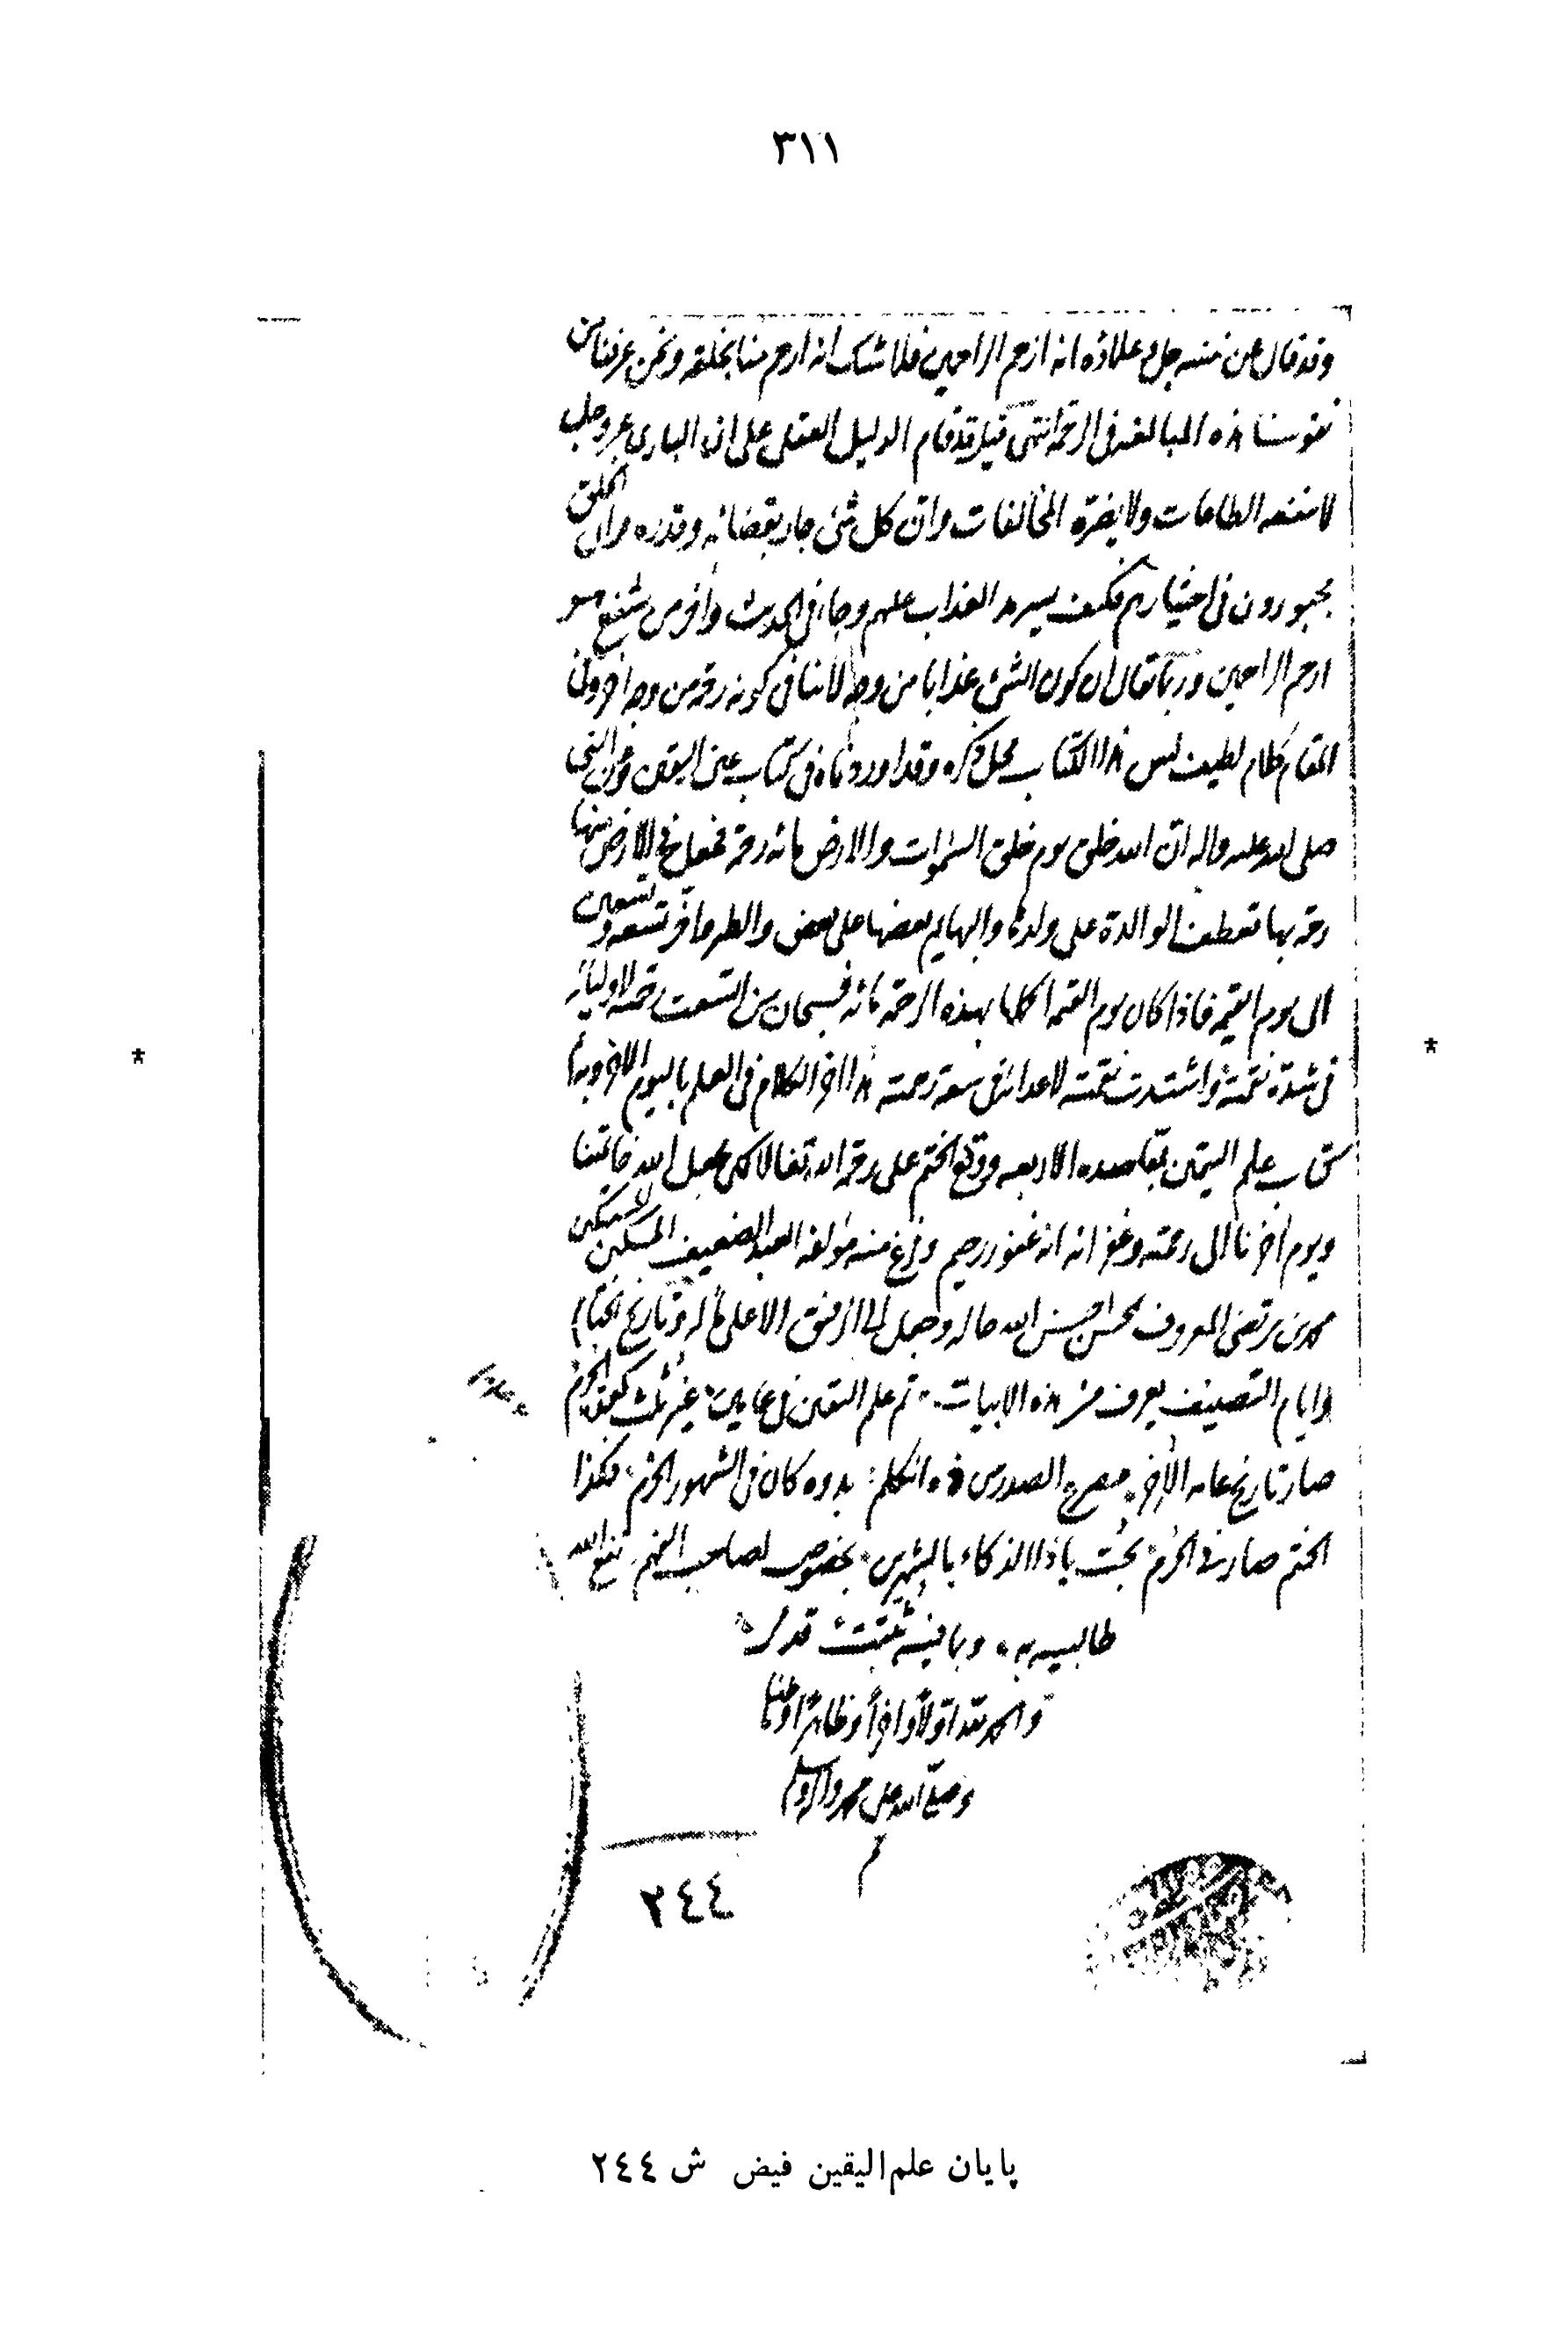 ٣١١
وقد قال عن نفسه جل علاؤه انه ارحم الراحمين فلا شك انه ارحم منا بخلقه ونحن عرفنا من
نفوسنا هذه المبالغة في الرحمة انتهى قيل قد قام الدليل العقلي على ان الباري عز وجل
لا تنفعه الطاعات ولا يضره المخالفات وان كل شئ جار بقضائه وقدره وان الخلق
مجبورون في اختيارهم فكيف يسرمد العذاب عليهم وجاء في الحديث وآخر من يشفع هو
ارحم الراحمين وربما يقال ان كون الشئ عذابا من وجه لا ينافي كونه رحمة من وجه آخر وفي
المقام كلام لطيف ليس هذا الكتاب محل ذكره وقد اوردناه في كتاب عين اليقين وعن النبي
صلى الله عليه واله ان الله خلق يوم خلق السموات والارض مائة رحمة فجعل في الارض منها
رحمة بها تعطف الوالدة على ولدها والبهايم بعضها على بعض والطير واخر تسعة وتسعين
الى يوم القيمة فاذا كان يوم القيمة اكملها بهذه الرحمة مائة فسبحان من اتسعت رحمته لاوليائه
في شدة نقمته واشتدت نقمته لاعدائه في سعة رحمته هذا اخر الكلام في العلم باليوم الاخر وبه تم
كتاب علم اليقين بمقاصده الاربعة ووقع الختم على رحمة الله تفالا لكي يجعل الله خاتمتنا
ويوم آخرنا الى رحمته وعفوه انه غفور رحيم وفرغ منه مؤلفه العبد الضعيف المسكين المستكين
محمد بن مرتضى المعروف بمحسن احسن الله حاله وجعل الى الرفيق الاعلى مآله وتاريخ اختتام
وايام التصنيف يعرف من هذه الابيات تم علم اليقين في عامين غير ثلث
صار تاريخ عامه الآخر مصرع الصدر من هذه الكلم بدوه كان في الشهور الحرم فكذا
الختم صار في الحرم بحت ياذا الذكاء بالشهرين بخصوص لصاحب الفهم نفع الله
طالبيه به وبما فيه ثبتت قدمي
والحمد لله اولا وآخرا وظاهرا وباطنا
وصلى الله على محمد واله وسلم
م
٢٤٤
پایان علم‌الیقین فیض ش ٢٤٤